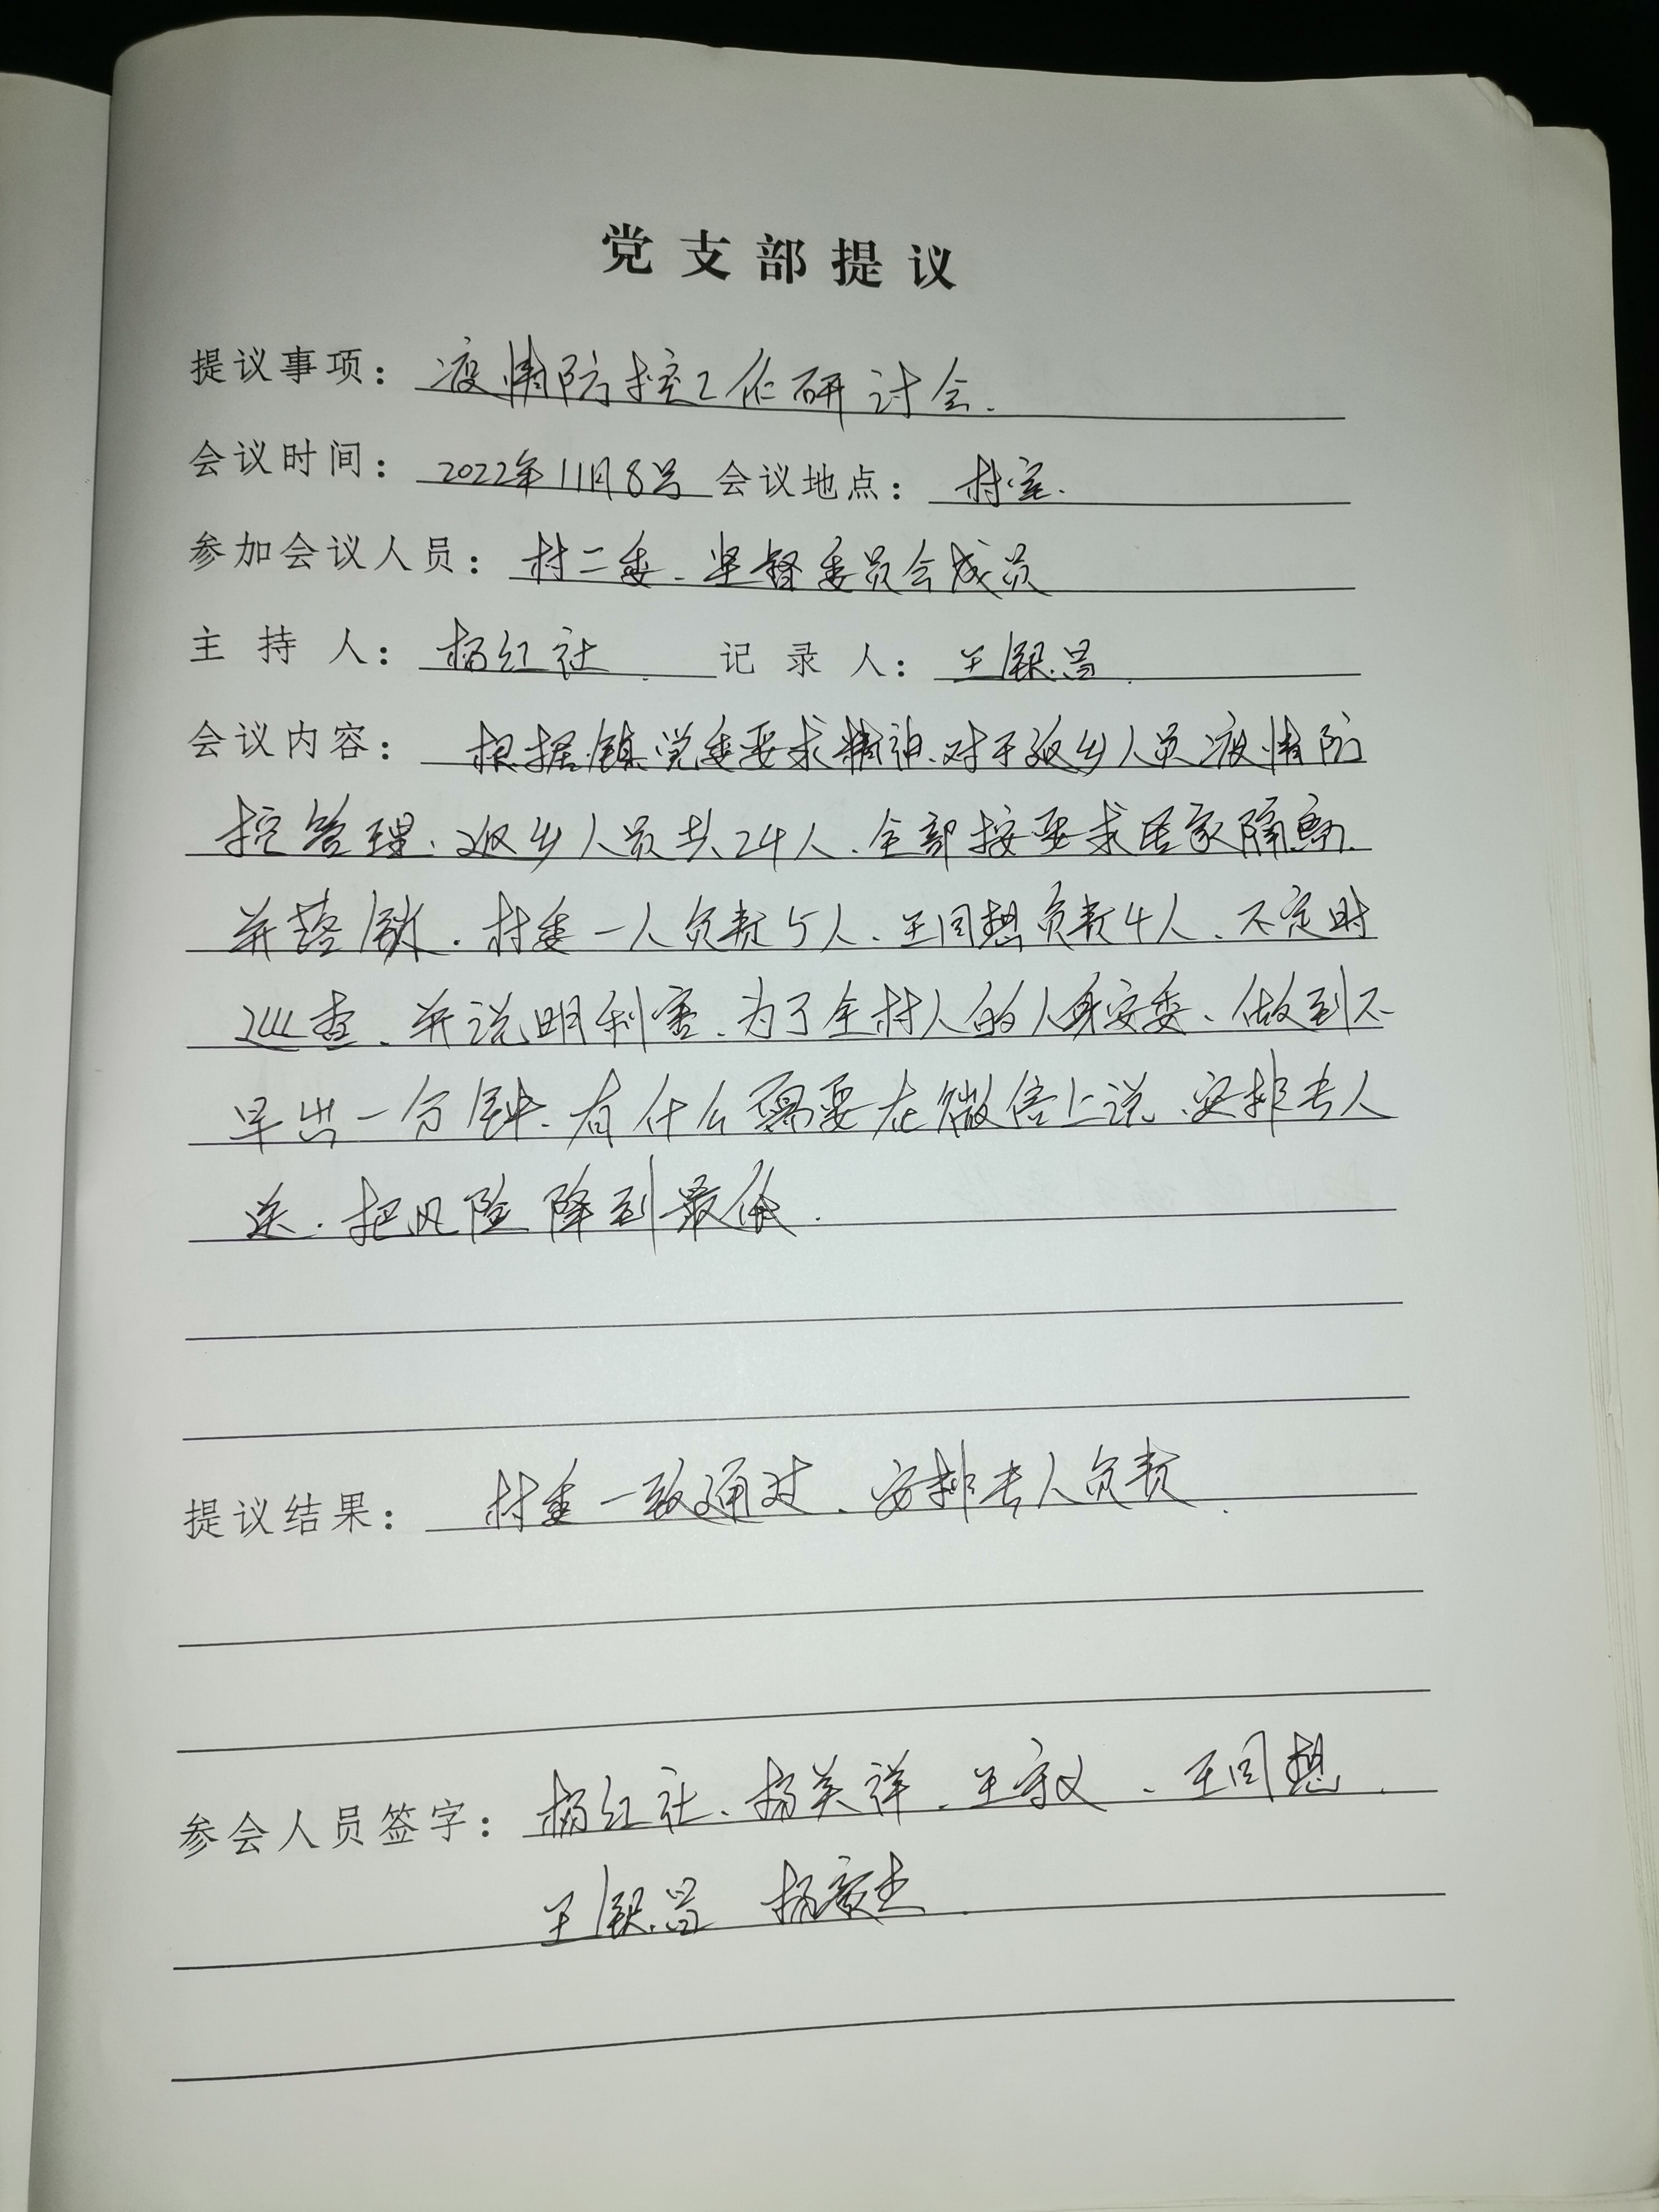 党支部提议
提议事项：疫情防控工作研讨会.
会议时间：2022年11月8号 会议地点：村室.
参加会议人员：村二委、坚督委员会成员
主持人：杨红社. 记录人：王银昌.
会议内容：根据镇党委要求精神、对于返乡人员疫情防
控管理、返乡人员共24人、全部按要求居家隔离.
并落锁.村委一人负责5人、王同想负责4人、不定时
巡查、并说明利害、为了全村人的人身安委、做到不
早出一分钟、有什么需要在微信上说、安排专人
送.把风险降到最低.
提议结果：村委一致通过、安排专人负责.
参会人员签字：杨红社、杨关祥、王守义、王同想.
王银昌 杨